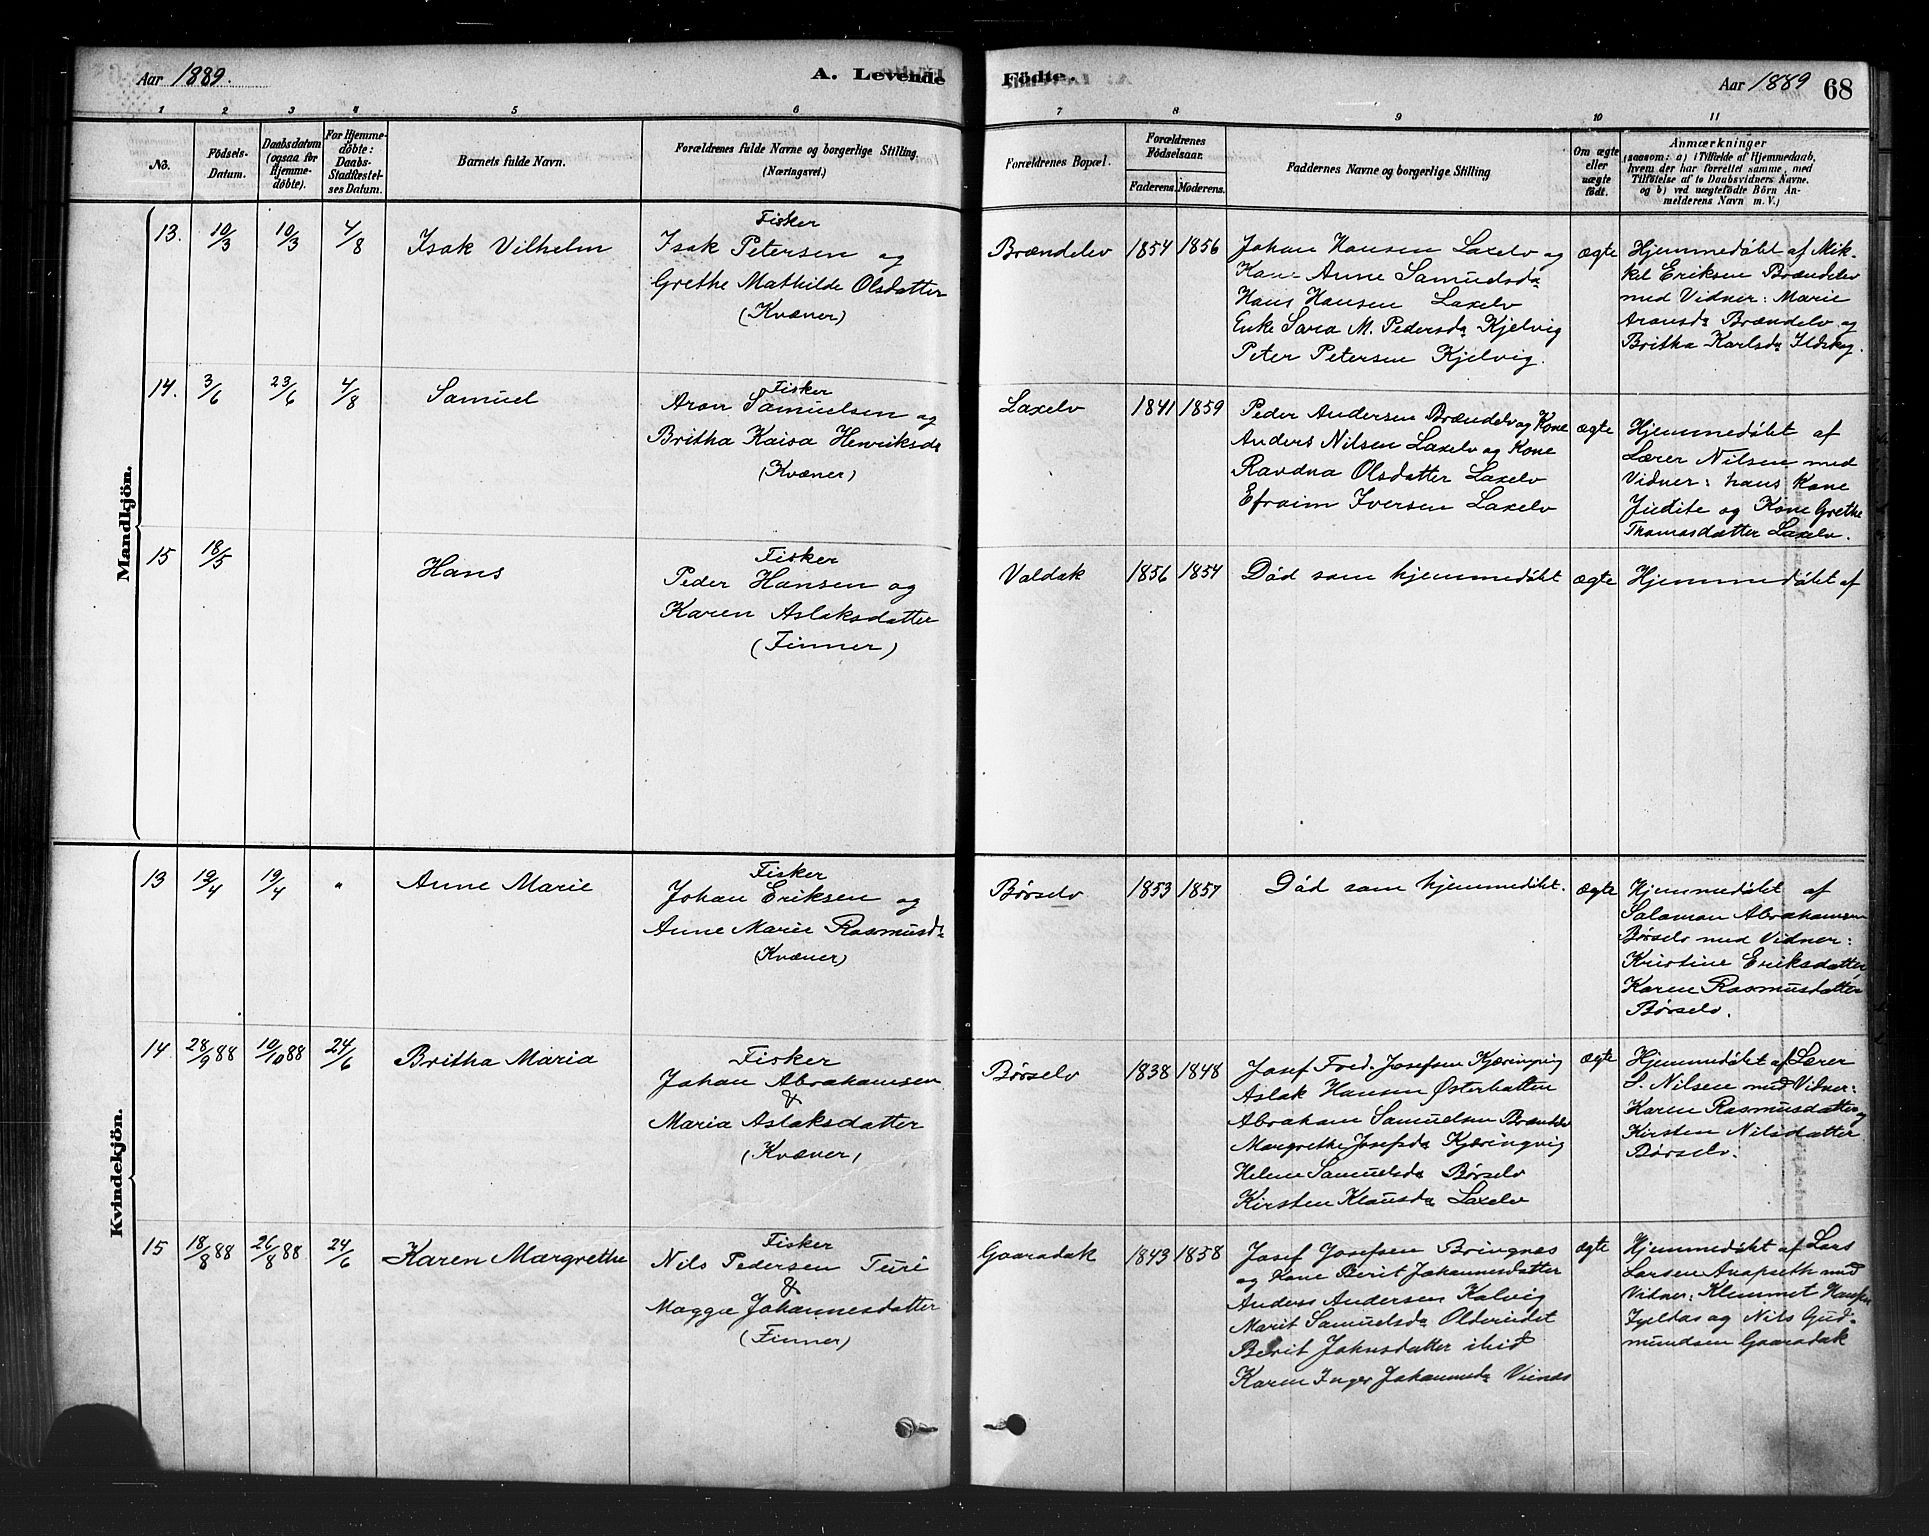 Aar 1889.
A. Levende
Födte.
Aar 1889
68
1 2 3 4 5 6 7 8 9 10 11
No.
Födsels-
Datum.
Daabsdatum
(ogsaa for
Hjemme-
döbte).
For Hjemme-
döbte:
Daabs-
Stadfæstel-
ses Datum.
Barnets fulde Navn.
Forældrenes fulde Navne og borgerlige Stilling.
(Næringsvei.)
Forældrenes Bopæl.
Forældrenes
Födselsaar.
Faderens.
Moderens.
Faddernes Navne og borgerlige Stilling
Om ægte
eller
uægte
födt.
Anmærkninger
(saasom: a) i Tilfælde af Hjemmedaab,
hvem der har forrettet samme, med
Tilföielse af to Daabsvidners Navne.
og b) ved uægtefödte Börn An-
melderens Navn m. V.)
Mandkjön.
13. 10/3 10/3 4/8 Isak Vilhelm
Fisker
Isak Petersen og
Grethe Mathilde Olsdatter
(Kvæner)
Brændelv 1854 1856
Johan Hansen Laxelv og
Kone Anne Samuelsda
Hans Hansen Laxelv
Enke Sara M. Pedersda Kjelvig
Peter Petersen Kjelvig.
ægte
Hjemmedøbt af Mik-
kel Eriksen Brændelv
med Vidner: Marie
Aronsda Brændelv og
Britha Karlsda Ildskog.
14. 3/6 23/6 4/8 Samuel
Fisker
Aron Samuelsen og
Britha Kaisa Henriksda
(Kvæner)
Laxelv 1841 1859
Peder Andersen Brændelv og Kone
Anders Nilsen Laxelv og Kone
Ravdna Olsdatter Laxelv
Efraim Iversen Laxelv
ægte
Hjemmedøbt af
Lærer Nilsen med
Vidner: hans Kone
Judite og Kone Grethe
Thomasdatter Laxelv.
15 18/5 Hans
Fisker
Peder Hansen og
Karen Aslaksdatter
(Finner)
Valdak 1856 1854
Død som hjemmedøbt
ægte
Hjemmedøbt af
Kvindekjön.
13 12/4 19/4 " Anne Marie
Fisker
Johan Eriksen og
Anne Marie Rasmusda
(Kvæner)
Børselv 1853 1857
Død som hjemmedøbt.
ægte
Hjemmedøbt af
Salamon Abrahamsen
Børselv med Vidner:
Kristine Eriksdatter
Karen Rasmusdatter
Børselv.
14. 28/9 88 10/10 88 24/6 Britha Maria
Fisker
Johan Abrahamsen
&
Maria Aslaksdatter
(Kvæner)
Børselv 1838 1848
Josef Fred. Josefsen Kjæringvig
Aslak Hansen Østerbotten
Abraham Samuelsen Brændelv
Margrethe Josefsda Kjæringvig
Helene Samuelsda Børselv
Kirsten Klausda Laxelv
ægte
Hjemmedøbt af Lærer
S. Nilsen med Vidner:
Karen Rasmusdatter og
Kirsten Nilsdatter
Børselv.
15 18/8 88 26/8 88 24/6 Karen Margrethe
Fisker
Nils Pedersen Turi
&
Magga Johannesdatter
(Finner)
Gaaradak 1843 1858
Josef Josefsen Bringnes
og Kone Berit Johannesdatter
Anders Andersen Kalvig
Marit Samuelsda Olderindet
Berit Johnsdatter ibid
Karen Inger Johannesda Vienes
ægte
Hjemmedøbt af Lars
Larsen Anapseth med
Vidner: Klemmet Hansen
og Nils Gud-
mundsen Gaaradak